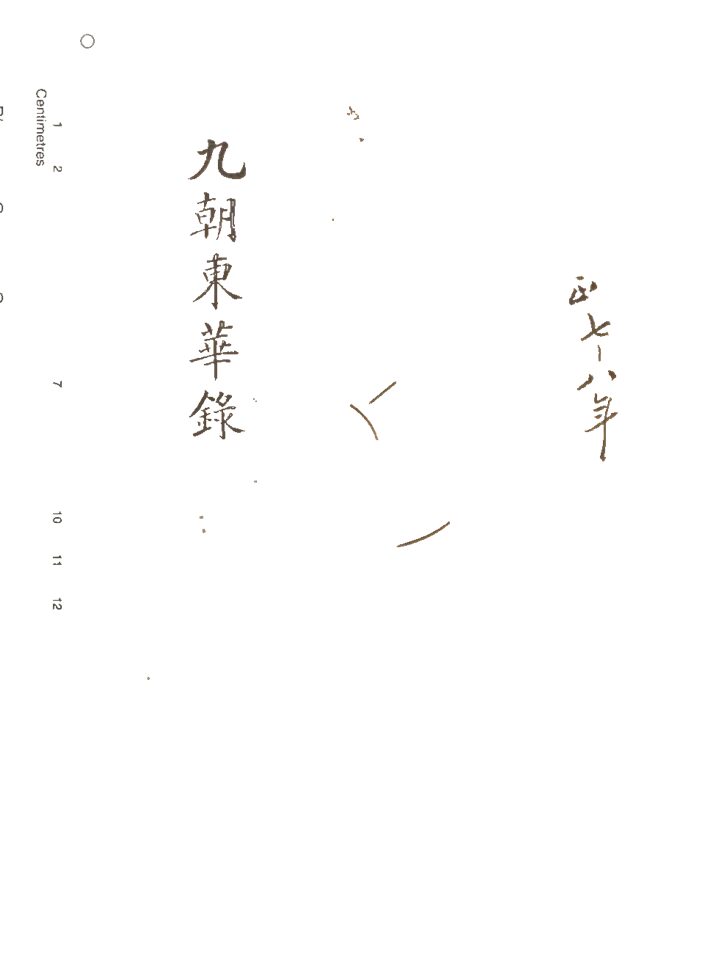 正七-八年
九朝東華錄
Centimetres
1 2 7 10 11 12